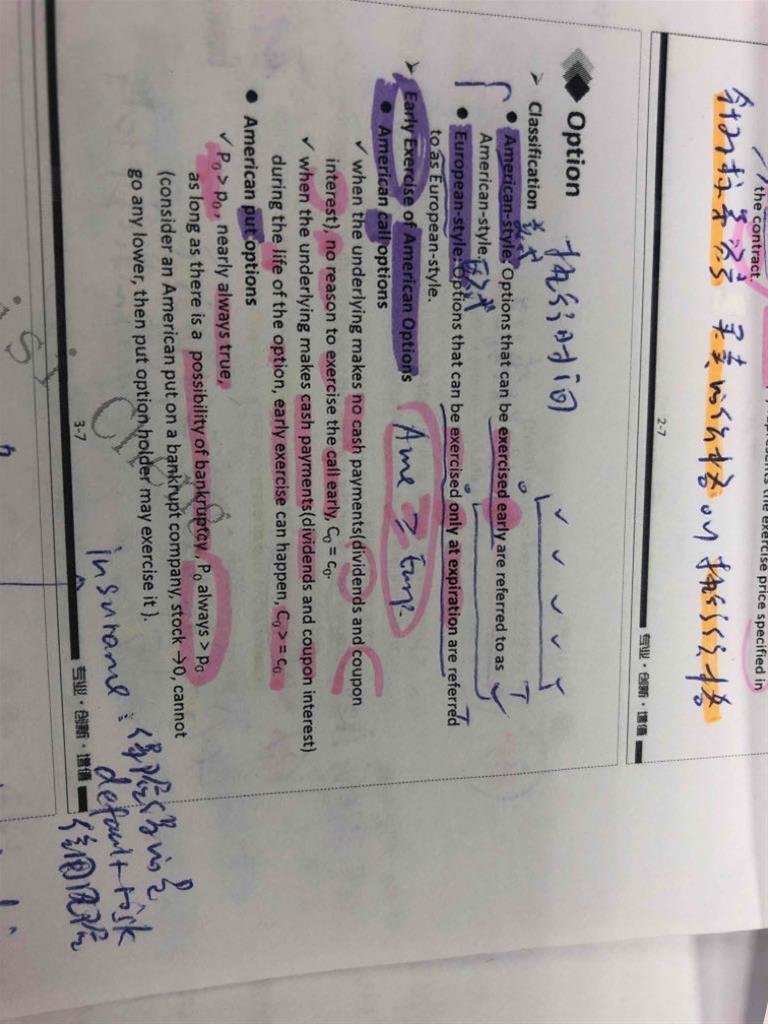 the contract.
the exercise price specified in
2-7
专业·创新·增值
Option
执行时间
➢ Classification
● American-style: Options that can be exercised early are referred to as
American-style. 美式
● European-style: Options that can be exercised only at expiration are referred
to as European-style.
欧式
T
T
➢ Early Exercise of American Options
Ame ≥ Eurp.
● American call options
✓ when the underlying makes no cash payments(dividends and coupon
interest), no reason to exercise the call early, C₀ = c₀.
✓ when the underlying makes cash payments(dividends and coupon interest)
during the life of the option, early exercise can happen, C₀ >= c₀
● American put options
✓ P₀ > p₀, nearly always true,
as long as there is a possibility of bankruptcy, P₀ always > p₀
(consider an American put on a bankrupt company, stock →0, cannot
go any lower, then put option holder may exercise it ).
3-7
专业·创新·增值
default risk
信用风险